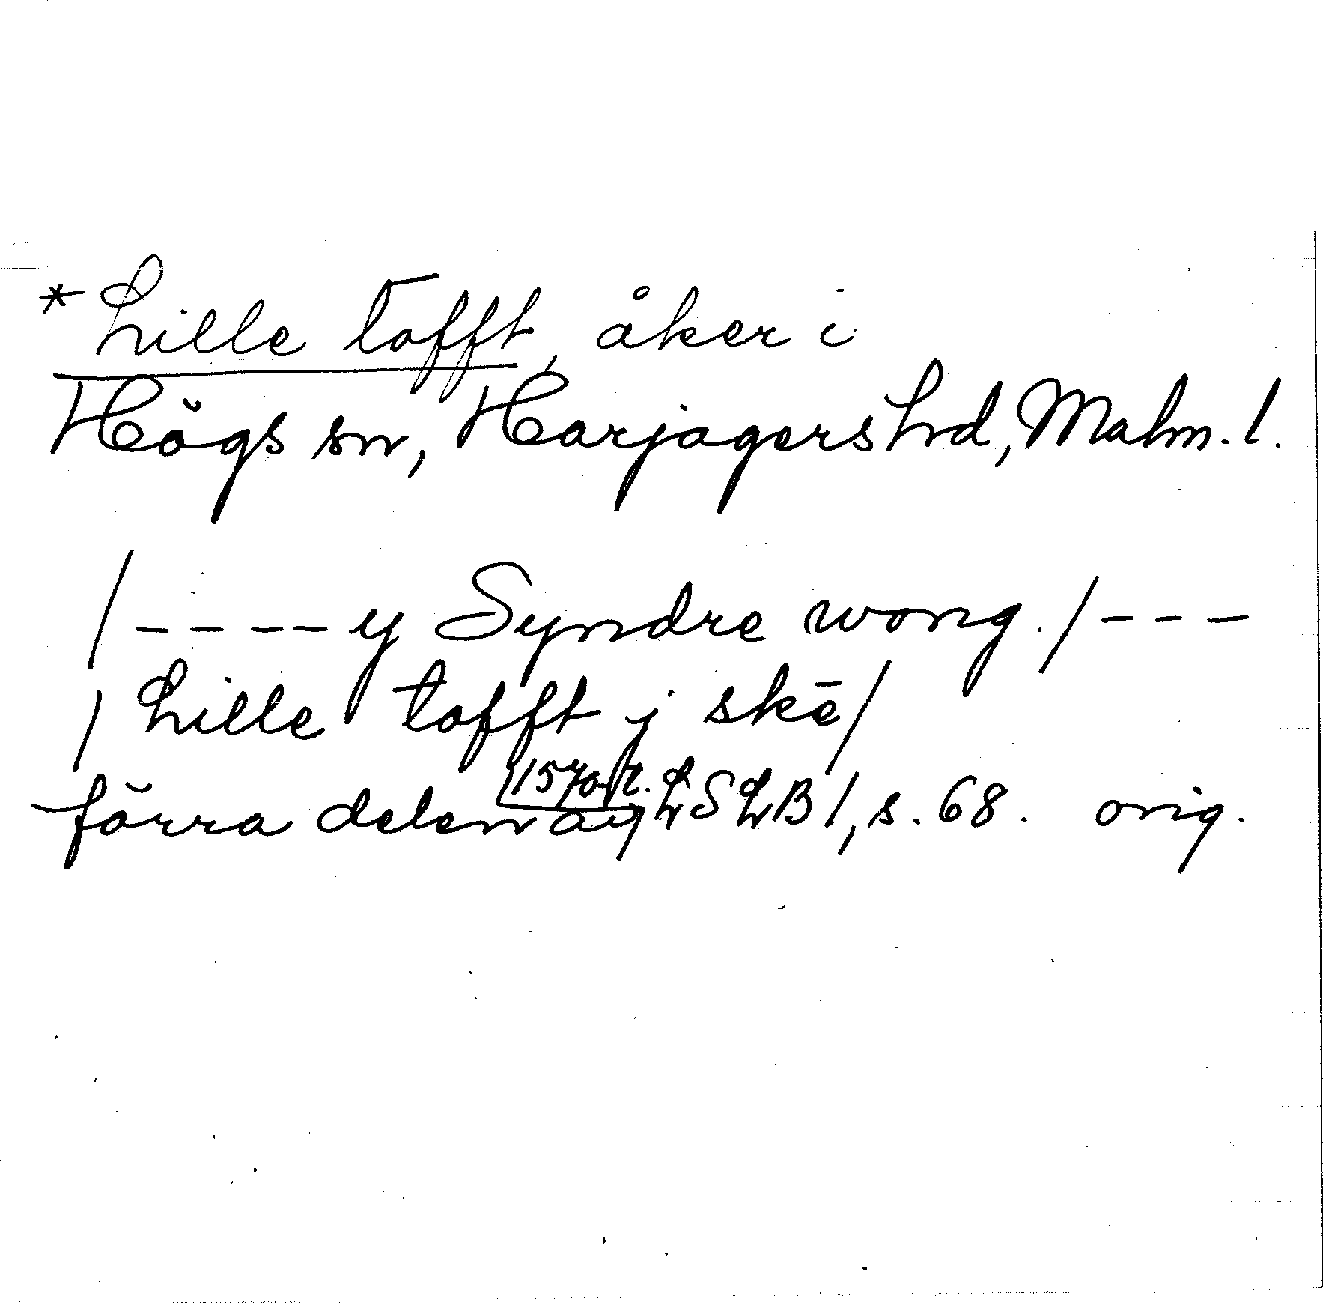 *Lille Tofft, åker i
Högs sn, Harjagers hd, Malm. l.
/----y Syndre wong./---
/ Lille tofft j skē/
förra delen av 1570 t. LSLB 1, s. 68. orig.